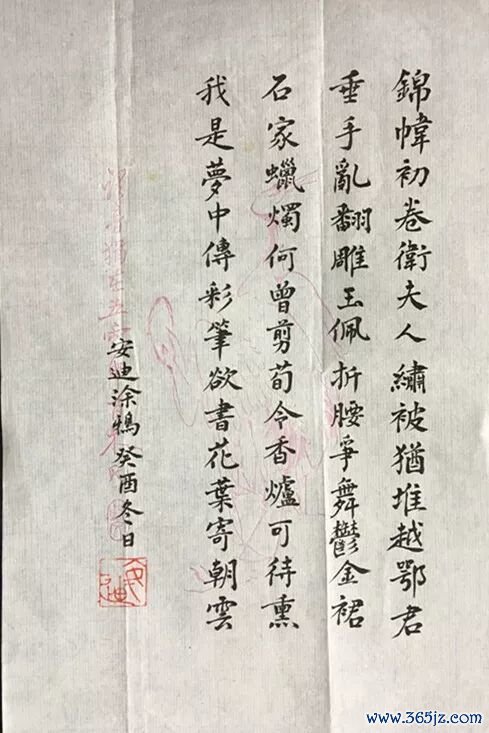 錦幃初卷衛夫人繡被猶堆越鄂君
垂手亂翻雕玉佩折腰爭舞鬱金裙
石家蠟燭何曾剪荀令香爐可待熏
我是夢中傳彩筆欲書花葉寄朝雲
安迪涂鴉癸酉冬日
安迪
www.365jz.com